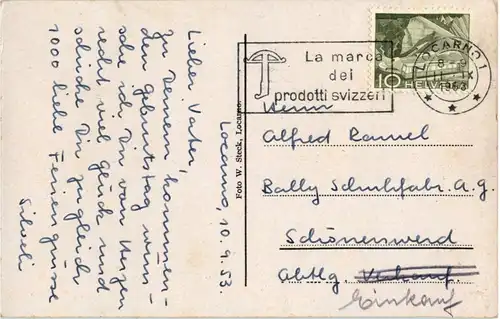 Locarno, 10.9.53.
Lieber Vater,
Zu Deinem kommen-
den Geburtstag wün-
sche ich Dir von Herzen
recht viel Glück und
schicke Dir zugleich
1000 liebe Feriengrüsse
Silveli
Foto W. Steck, Locarno.
La marca
dei
prodotti svizzeri
10
HELVETIA
LOCARNO 1
1953
Herrn
Alfred Ramel
Bally Schuhfabr. A.G.
Schönenwerd
Abtlg. Verkauf
Einkauf